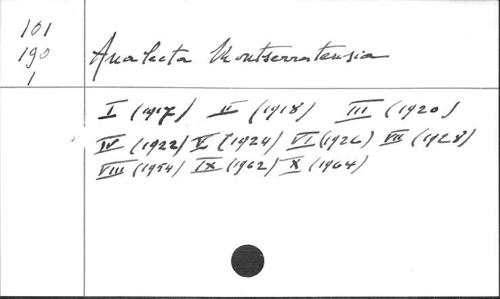 101
190
1
Analecta Montserratensia
I (1917) II (1918) III (1920)
IV (1922) V (1924) VI (1926) VII (1928)
VIII (1954) IX (1962) X (1964)